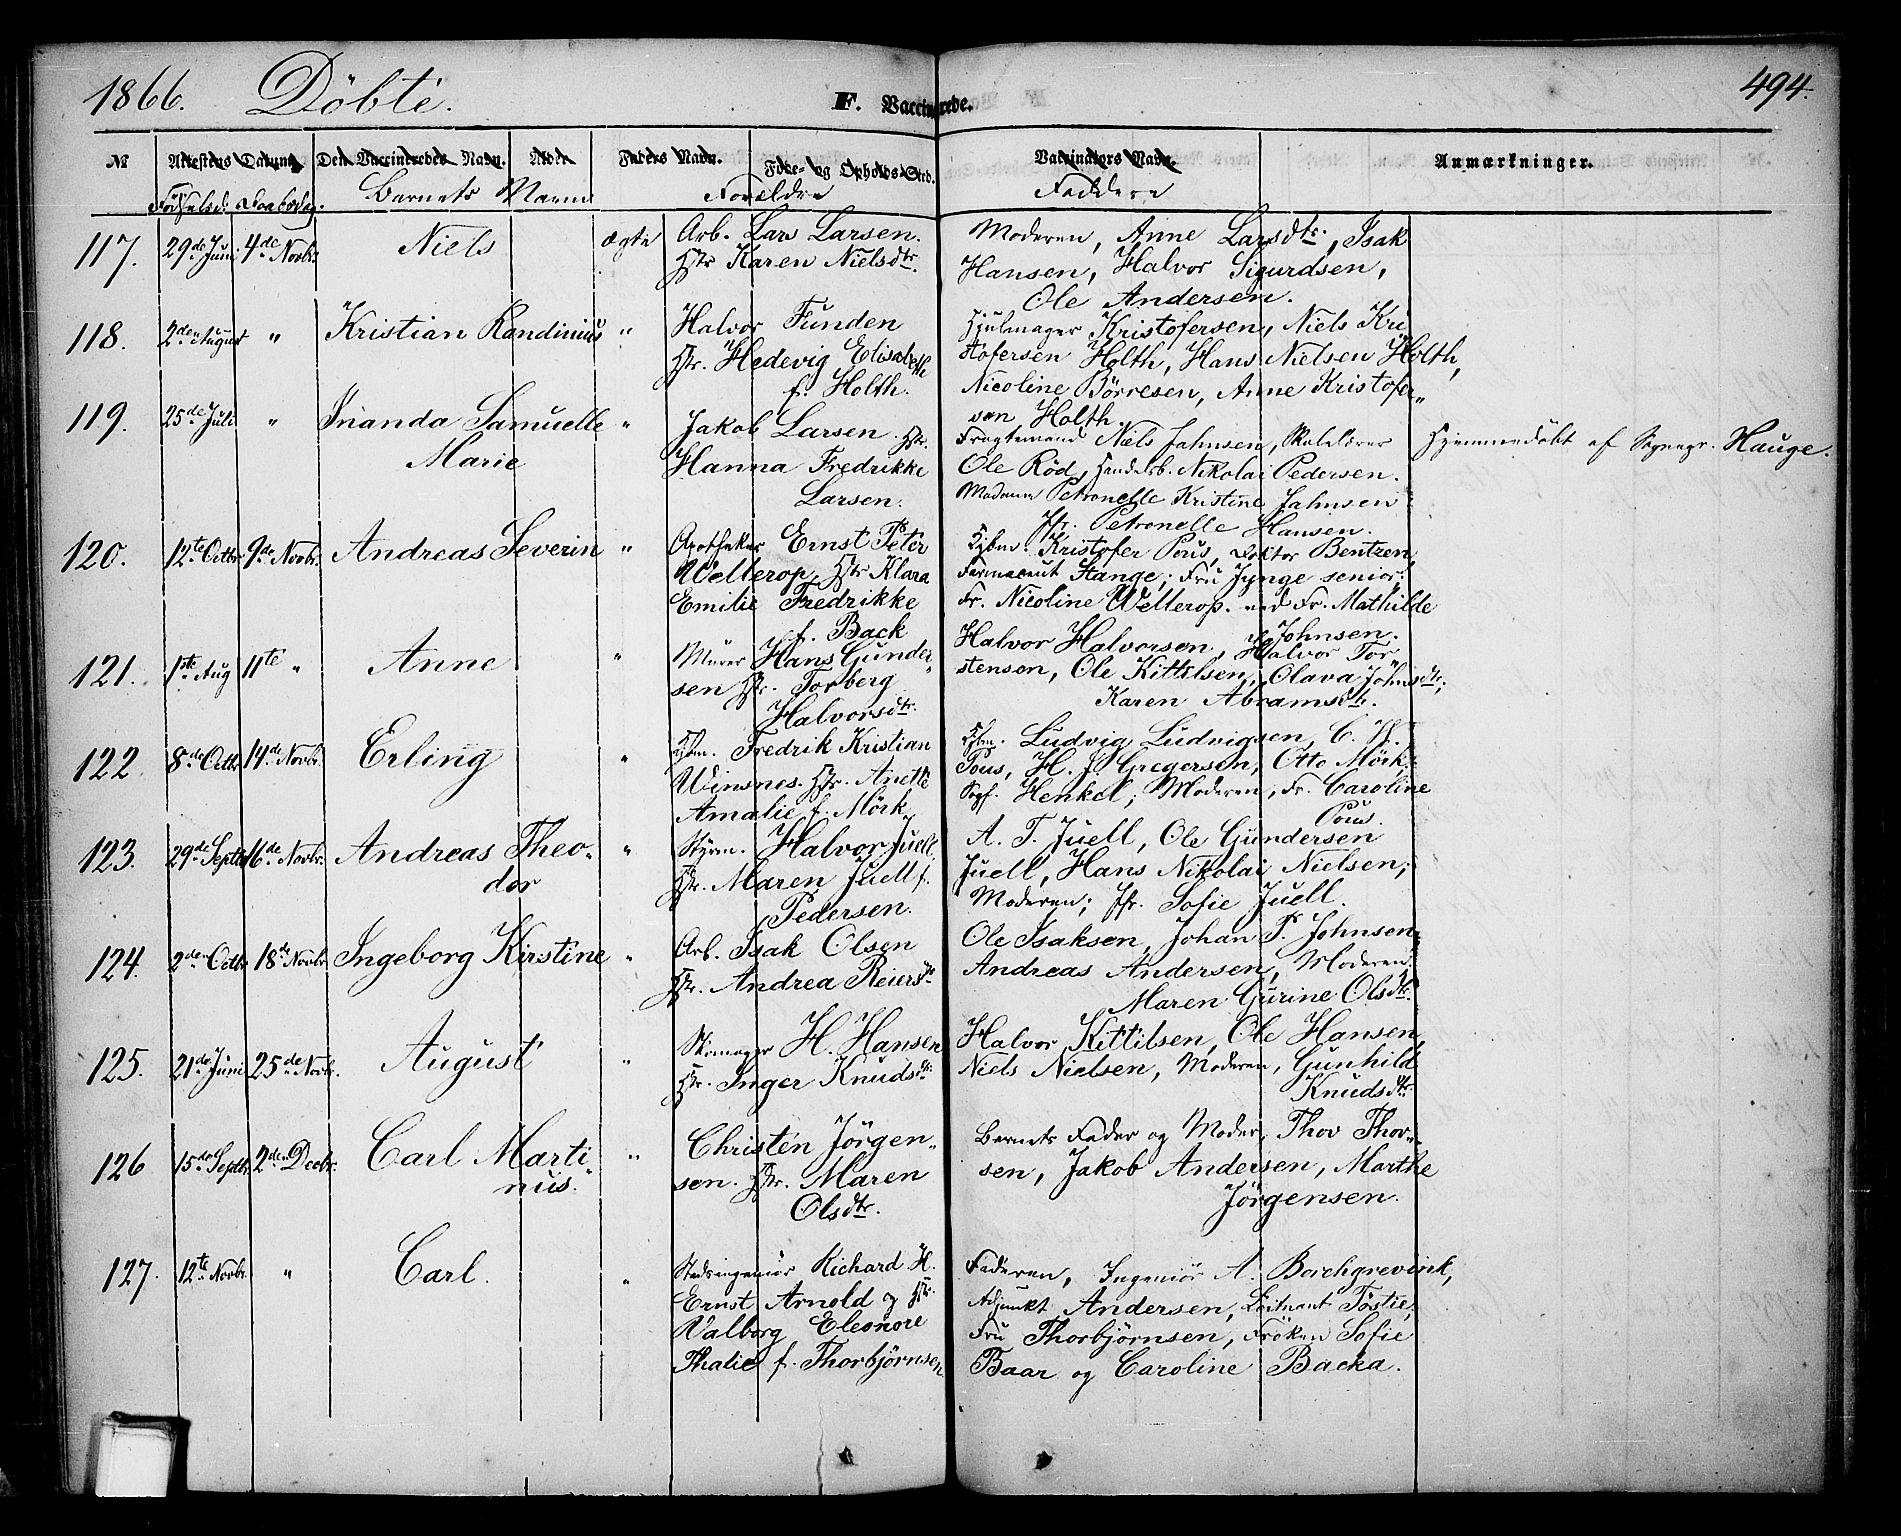 1866. Döbte. F. Vaccinerede. 494.
№ Attestens Datum. Den Vaccineredes Navn. Alder Faders Navn. Føde- og Opholds-Sted. Vaccinators Navn. Anmærkninger.
Födselsd. Daabsdag. Barnets Navne Forældre Faddere
117. 29de Juni 4de Novbr. Niels ægte Arb. Lars Larsen. Moderen, Anne Larsdtr., Isak
Hstr. Karen Nielsdtr. Hansen, Halvor Sigurdsen,
Ole Andersen.
118. 2den August " Kristian Randinius " Halvor Funden Hjulmager Kristofersen, Niels Kri
Hstr. Hedevig Elisabeth stofersen Holth, Hans Nielsen Holth,
f. Holth. Nicoline Börresen, Anne Kristofer„
sen Holth.
119. 25de Juli " Inanda Samuelle " Jakob Larsen. Hstr. Fragtemand Niels Jahnsen, Skolelærer Hjemmedöbt af Sognepr. Hauge.
Marie Hanna Fredrikke Ole Röd, Handelsb. Nikolai Pedersen.
Larsen. Madame Petronelle Kristine Jahnsen
Jfr. Petronelle Hansen.
120. 12te Octbr 9de Novbr. Andreas Severin " Apotheker Ernst Peter Kjbm. Kristofer Pous, Doktor Bentzen,
Welterop, Hstr Klara Farmaceut Stange; Fru Jynge senior;
Emilie Fredrikke Fr. Nicoline Welterop. and Fr. Mathilde
f. Back Johnsen.
121. 1ste Aug 11te " Anne " Murer Hans Gunder„ Halvor Halvorsen, Halvor Tor„
sen Hstr. Torberg stensen, Ole Kittelsen, Olava Johnsdtr;
Halvorsdtr. Karen Abramsdtr.
122. 8de Octbr 14de Novbr. Erling " Kjbm. Fredrik Kristian Kjbm. Ludvig Ludvigsen, C. W.
Winsnes. Hstr. Anette Pous, H. J. Gregersen, Otto Mörk,
Amalie f. Mörk. Sogf. Henkel; Moderen; Fr. Caroline
Pous.
123. 29de Septbr 16de Novbr. Andreas Theo„ " Styrm. Halvor Juell. A. T. Juell, Ole Gundersen
dor Hstr. Maren Juell f. Juell, Hans Nikolai Nielsen;
Pedersen. Moderen; Jfr. Sofie Juell.
124. 2den Octbr 18de Novbr Ingeborg Kirstine " Arb. Isak Olsen Ole Isaksen, Johan P. Johnsen,
Hstr. Andrea Reiersdtr. Andreas Andersen, Moderen.
Maren Gurine Olsdtr.
125. 21de Juni 25de Novbr. August " Skomager H. Hansen Halvor Kittilsen, Ole Hansen,
Hstr. Inger Knudsdtr. Niels Nielsen, Moderen, Gunhild
Knudsdtr.
126 15de Septbr. 2den Decbr. Carl Marti„ " Christen Jörgen„ Barnets Fader og Moder, Thov Thov„
nus. sen. Hstr. Maren sen, Jakob Andersen, Marthe
Olsdtr. Jörgensen.
127. 12te Novbr. " Carl. " Stadsingeniör Richard H. Faderen, Ingeniör A. Borchgrevink,
Ernst Arnold og Hstr. Adjunkt Andersen, Löitnant Töstie,
Valborg Eleonore Fru Thorbjörnsen, Fröken Sofie
Thalie f. Thorbjörnsen Baar og Caroline Backa.